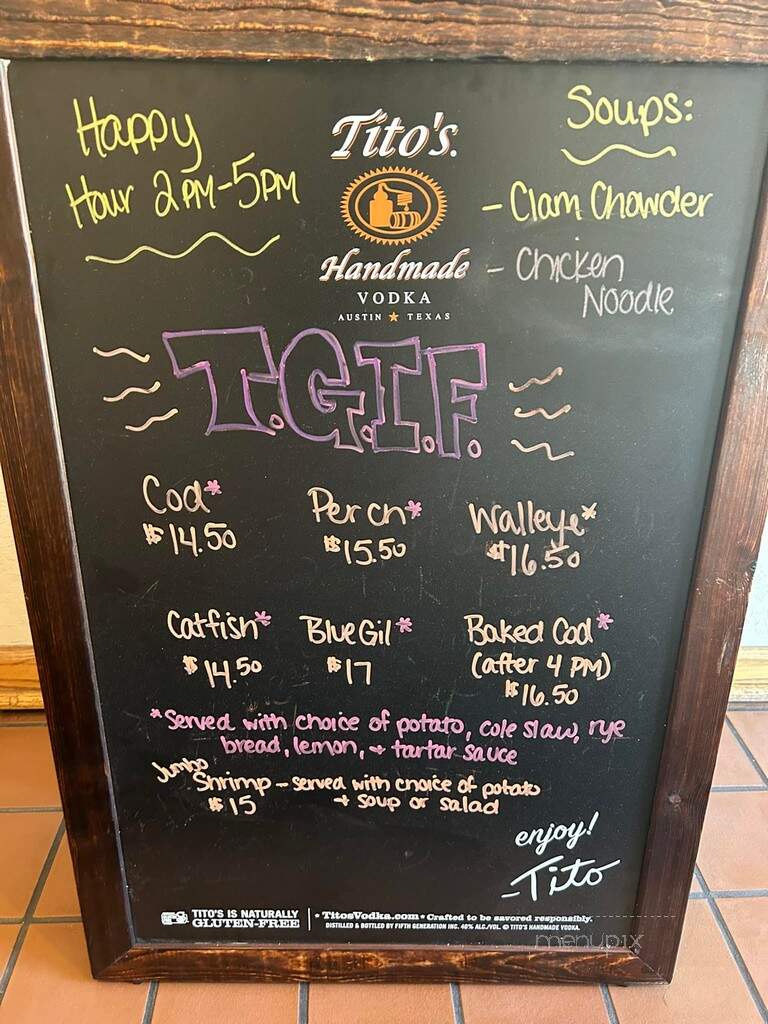 Happy
Hour 2PM-5PM
Tito's.
Handmade
VODKA
AUSTIN ★ TEXAS
Soups:
- Clam Chowder
- Chicken
Noodle
T.G.I.F.
Cod*
$14.50
Perch*
$15.50
Walleye*
$16.50
Catfish*
$14.50
BlueGil*
$17
Baked Cod*
(after 4 PM)
$16.50
*Served with choice of potato, cole slaw, rye
bread, lemon, + tartar sauce
Jumbo
Shrimp - served with choice of potato
$15 + soup or salad
enjoy!
-Tito
TITO'S IS NATURALLY
GLUTEN-FREE
• TitosVodka.com • Crafted to be savored responsibly.
DISTILLED & BOTTLED BY FIFTH GENERATION INC. 40% ALC./VOL. © TITO'S HANDMADE VODKA.
menupix